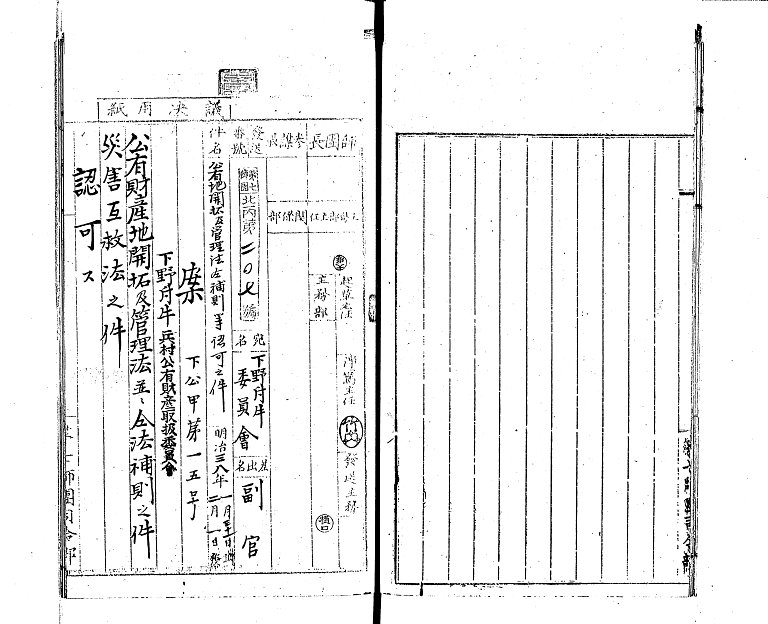 議決用紙
師團長
參謀長
主務部主任
關係部
起草主任
主務部
淨寫主任
發送主務
發送番號
第七師團
北丙第二〇七號
宛名
下野月牛委員會
差出名
副官
件名
公有地開拓及管理法仝補則等認可之件
明治三八年
案
下公甲第一五号
下野月牛兵村公有財産取扱委員會
公有財産地開拓及管理法並ニ仝法補則之件
災害互救法之件
認可ス
第七師團司令部
第七師團司令部